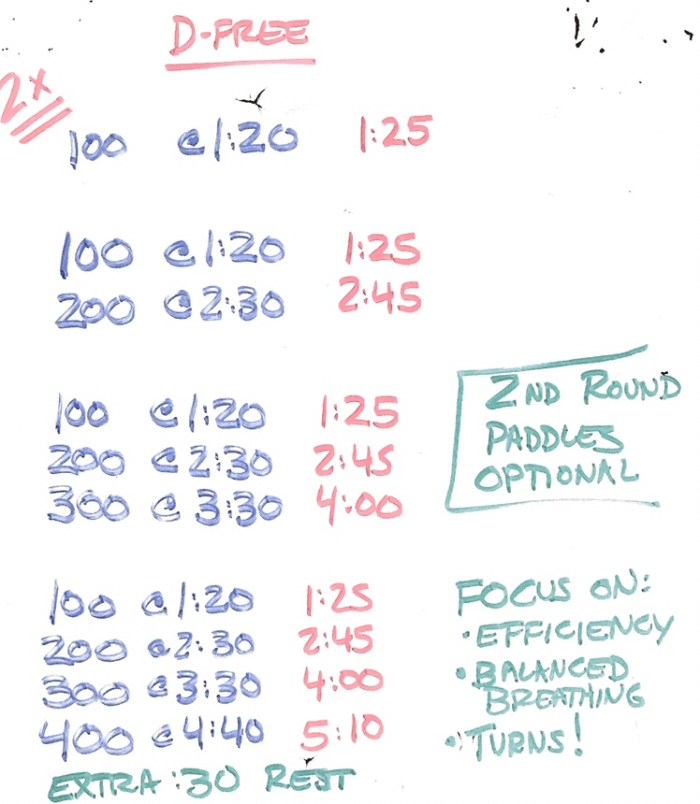 D-FREE
2x
100 @ 1:20 1:25
100 @ 1:20 1:25
200 @ 2:30 2:45
100 @ 1:20 1:25
200 @ 2:30 2:45
300 @ 3:30 4:00
2ND ROUND
PADDLES
OPTIONAL
100 @ 1:20 1:25
200 @ 2:30 2:45
300 @ 3:30 4:00
400 @ 4:40 5:10
EXTRA :30 REST
FOCUS ON:
• EFFICIENCY
• BALANCED
BREATHING
• TURNS!